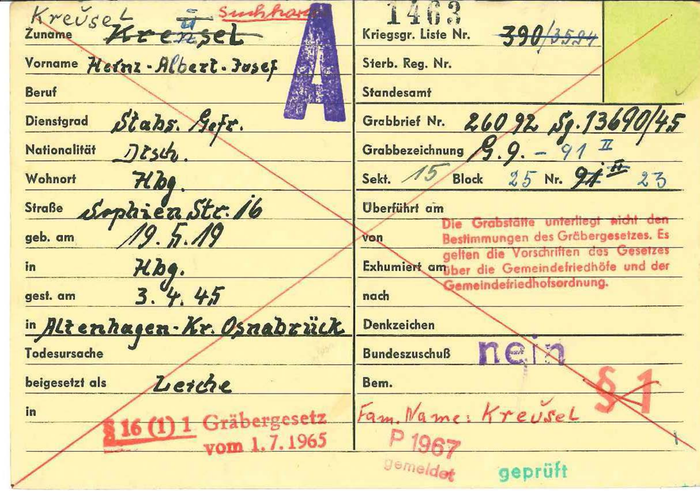 Kreüsel II Suchkarte
Zuname Kreusel
Vorname Heinz-Albert-Josef
Beruf
Dienstgrad Stabs. Gefr.
Nationalität Dtsch.
Wohnort Hbg.
Straße Sophien Str. 16
geb. am 19.5.19
in Hbg.
gest. am 3.4.45
in Altenhagen-Kr. Osnabrück
Todesursache
beigesetzt als Leiche
in
§ 16 (1) 1 Gräbergesetz
vom 1.7.1965
A
1463
Kriegsgr. Liste Nr. 390/3594
Sterb. Reg. Nr.
Standesamt
Grabbrief Nr. 26092 Sg. 13690/45
Grabbezeichnung G.9. - 91 II
Sekt. 15 Block 25 Nr. 91 II 23
Überführt am
von
Exhumiert am
nach
Die Grabstätte unterliegt nicht den
Bestimmungen des Gräbergesetzes. Es
gelten die Vorschriften des Gesetzes
über die Gemeindefriedhöfe und der
Gemeindefriedhofsordnung.
Denkzeichen
Bundeszuschuß nein
Bem. § 1
Fam. Name: Kreüsel
P 1967
gemeldet
geprüft